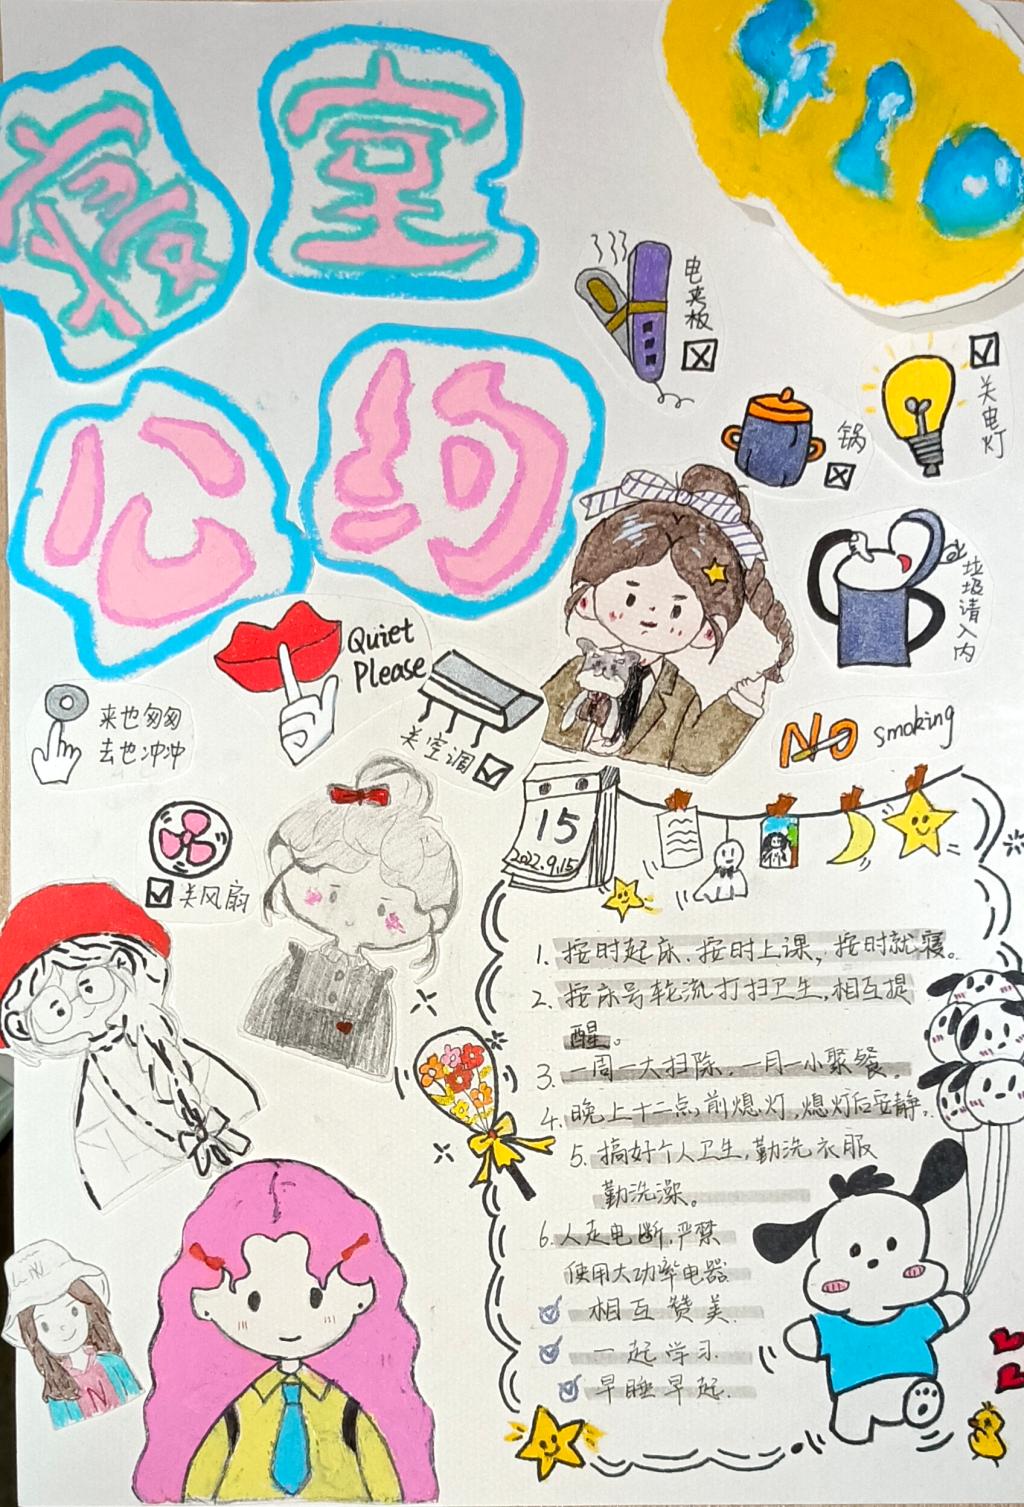 寝室
410
公约
电夹板
关电灯
锅
垃圾请入内
Quiet
Please
来也匆匆
去也冲冲
关空调
NO smoking
关风扇
15
2022.9.15
1. 按时起床、按时上课，按时就寝。
2. 按床号轮流打扫卫生，相互提
醒。
3. 一周一大扫除，一月一小聚餐。
4. 晚上十二点前熄灯，熄灯后安静。
5. 搞好个人卫生，勤洗衣服
勤洗澡。
6. 人走电断，严禁
使用大功率电器
相互赞美.
一起学习.
早睡早起.
N